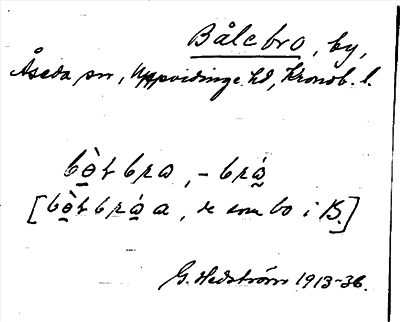 Bålebro, by,
Åseda sn, Uppvidinge hd, Kronob. l.
bọ̀tbra, -brạ́
[bọ̀tbrạ́a, de som bo i B.]
G. Hedström 1913-36.